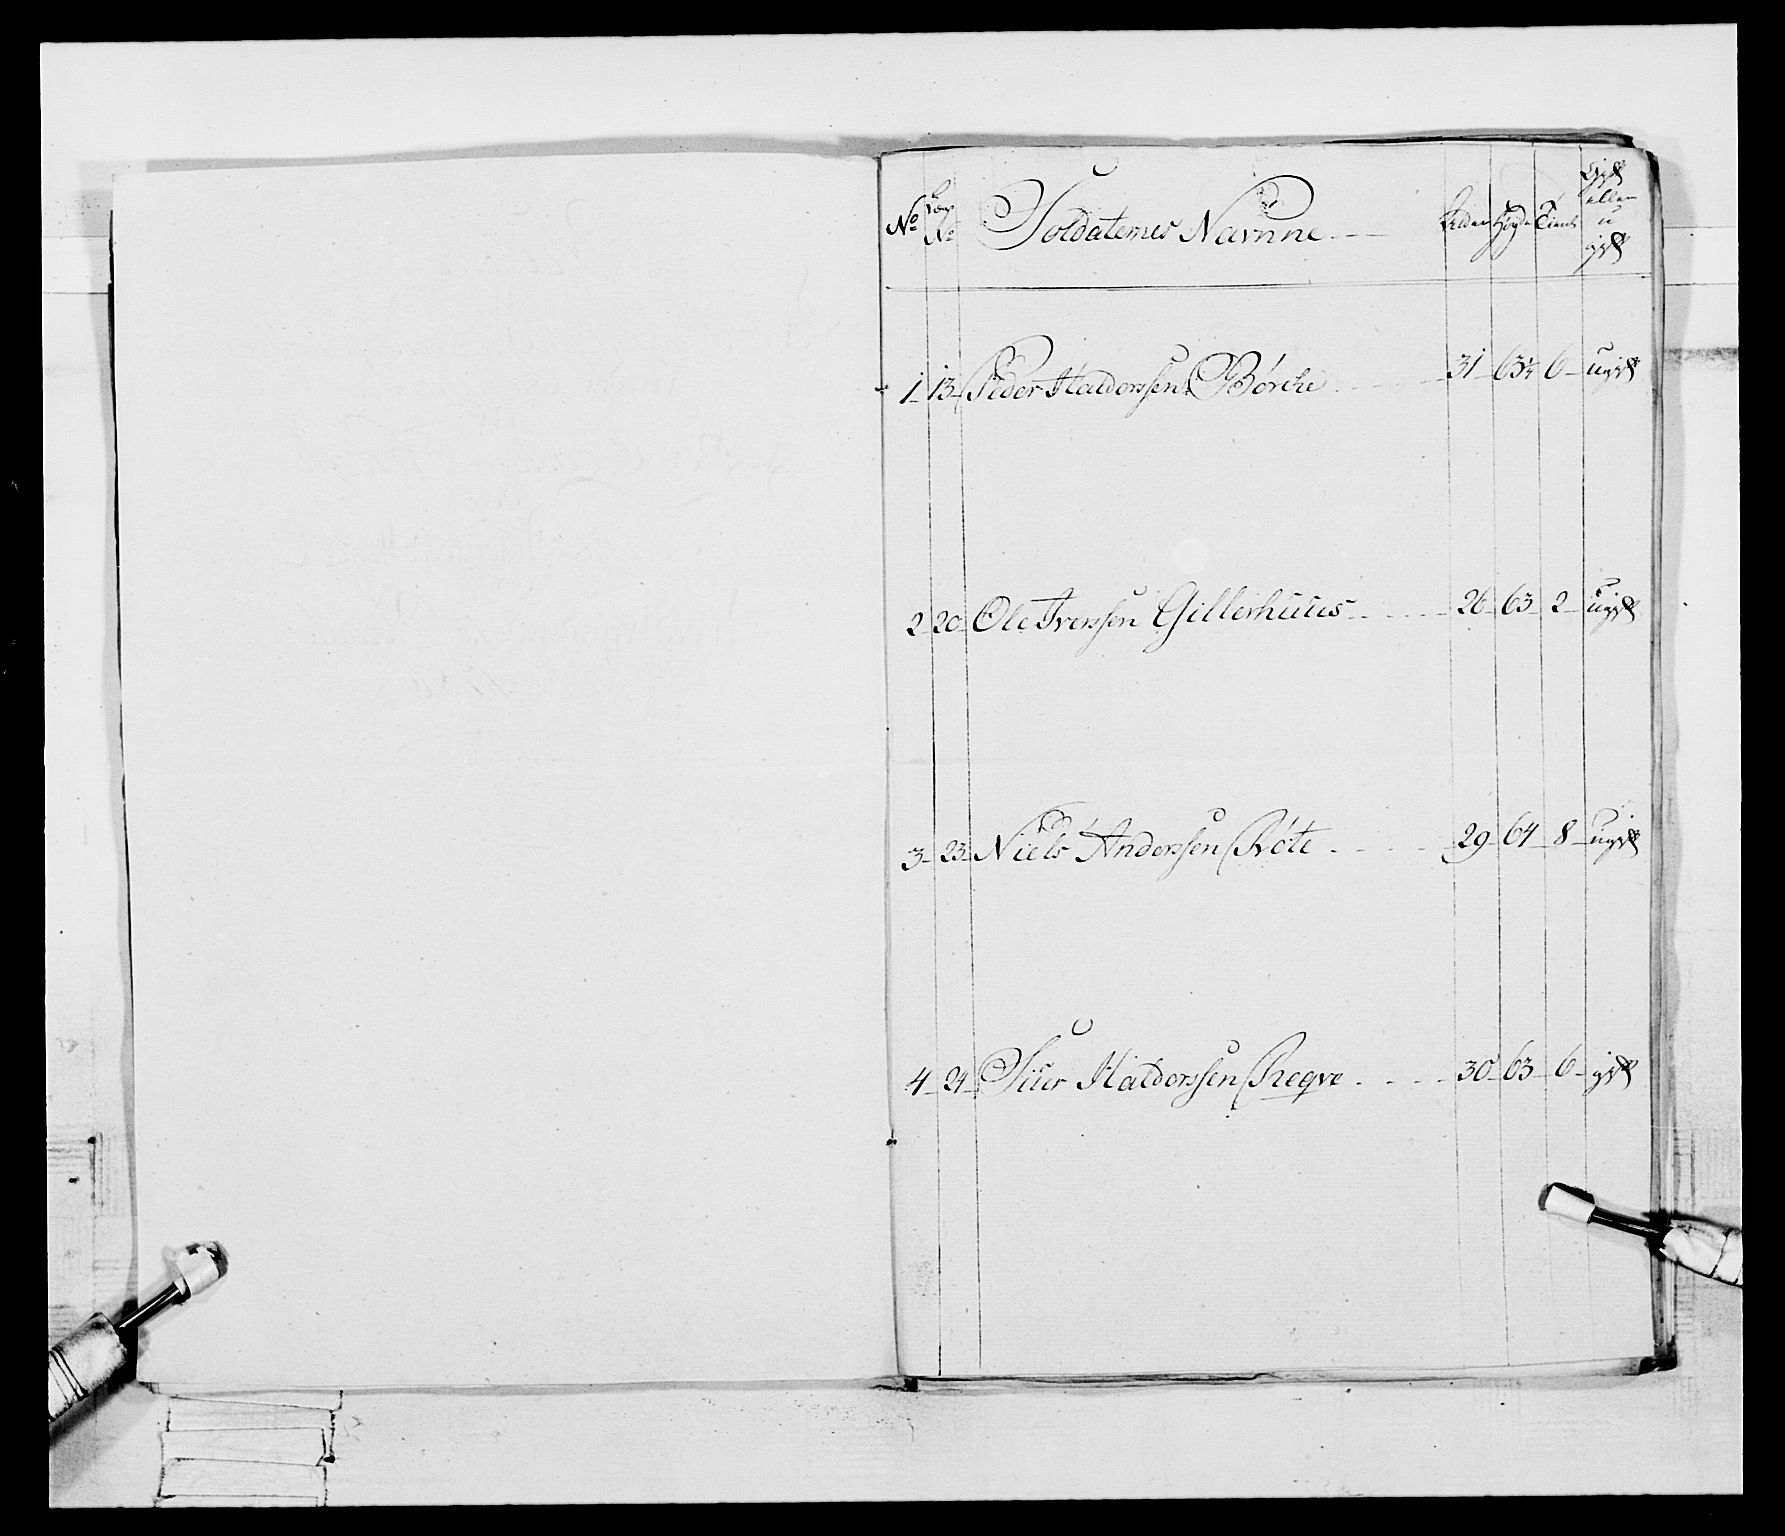 No Læg No Soldaternes Navnne Alder Høyde Tient Gift eller u gift
1 13 Peder Haldorssen Børche 31 63½ 6 ugift
2 20 Ole Iverssen Gillerhuus 26 63 2 ugift
3 23 Niels Anderssen Röte 29 64 8 ugift
4 24 Siur Haldorssen Reqve 30 63 6 gift